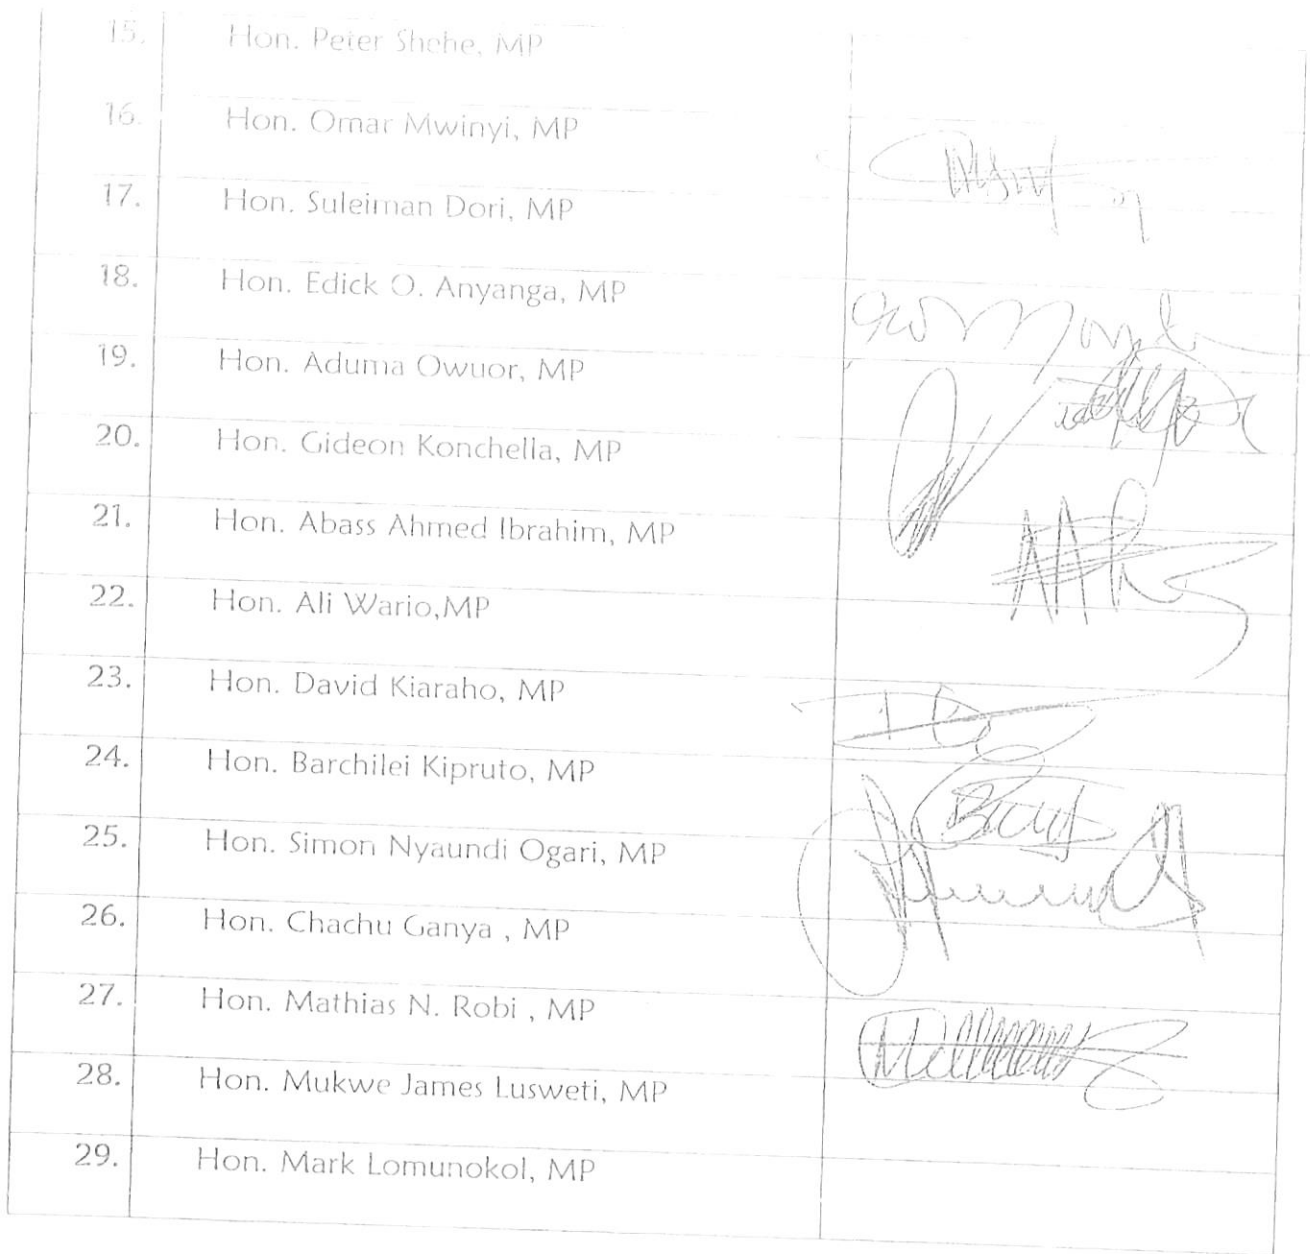 15. Hon. Peter Shehe, MP
16. Hon. Omar Mwinyi, MP
17. Hon. Suleiman Dori, MP
18. Hon. Edick O. Anyanga, MP
19. Hon. Aduma Owuor, MP
20. Hon. Gideon Konchella, MP
21. Hon. Abass Ahmed Ibrahim, MP
22. Hon. Ali Wario,MP
23. Hon. David Kiaraho, MP
24. Hon. Barchilei Kipruto, MP
25. Hon. Simon Nyaundi Ogari, MP
26. Hon. Chachu Ganya , MP
27. Hon. Mathias N. Robi , MP
28. Hon. Mukwe James Lusweti, MP
29. Hon. Mark Lomunokol, MP